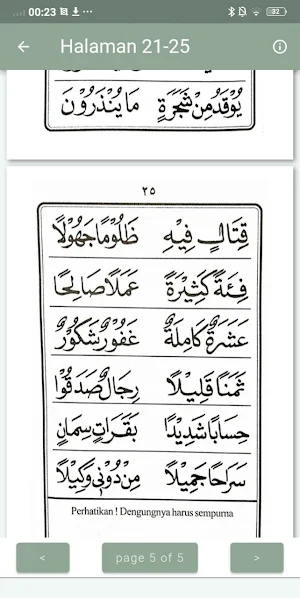 00:23
32
Halaman 21-25
يُوْقَدُ مِنْ شَجَرَةٍ مَا يُنْذَرُوْنَ
٢٥
قِتَالٍ فِيْهِ ظَلُوْمًا جَهُوْلًا
فِئَةً كَثِيْرَةً عَمَلًا صَالِحًا
عَشَرَةٌ كَامِلَةٌ غَفُوْرٌ شَكُوْرٌ
ثَمَنًا قَلِيْلًا رِجَالٌ صَدَقُوْا
حِسَابًا شَدِيْدًا بَقَرَاتٍ سِمَانٍ
سَرَاحًا جَمِيْلًا مِنْ دُوْنِيْ وَكِيْلًا
Perhatikan ! Dengungnya harus sempurna
< page 5 of 5 >